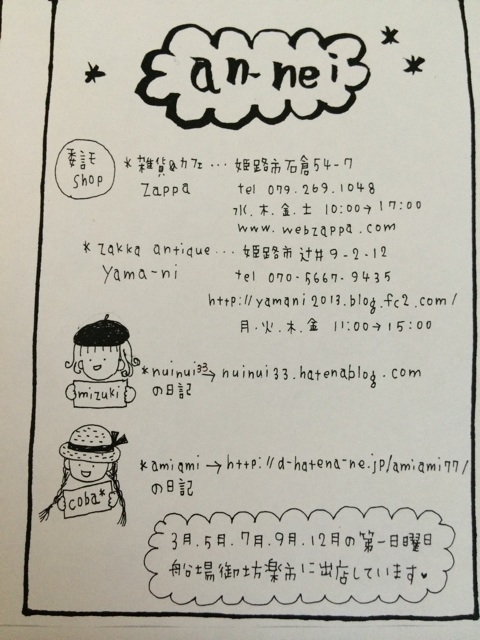 an-nei
委託
shop
*雑貨&カフェ… 姫路市石倉54-7
Zappa tel 079.269.1048
水.木.金.土 10:00→17:00
www.webzappa.com
*zakka antique… 姫路市辻井9-2-12
Yama-ni tel 070-5667-9435
http://yamani2013.blog.fc2.com/
月.火.木.金 11:00→15:00
mizuki
*nuinui33→nuinui33.hatenablog.com
の日記
coba*
*amiami→http://d-hatena-ne.jp/amiami77/
の日記
3月.5月.7月.9月.12月の第一日曜日
船場御坊楽市に出店しています♥